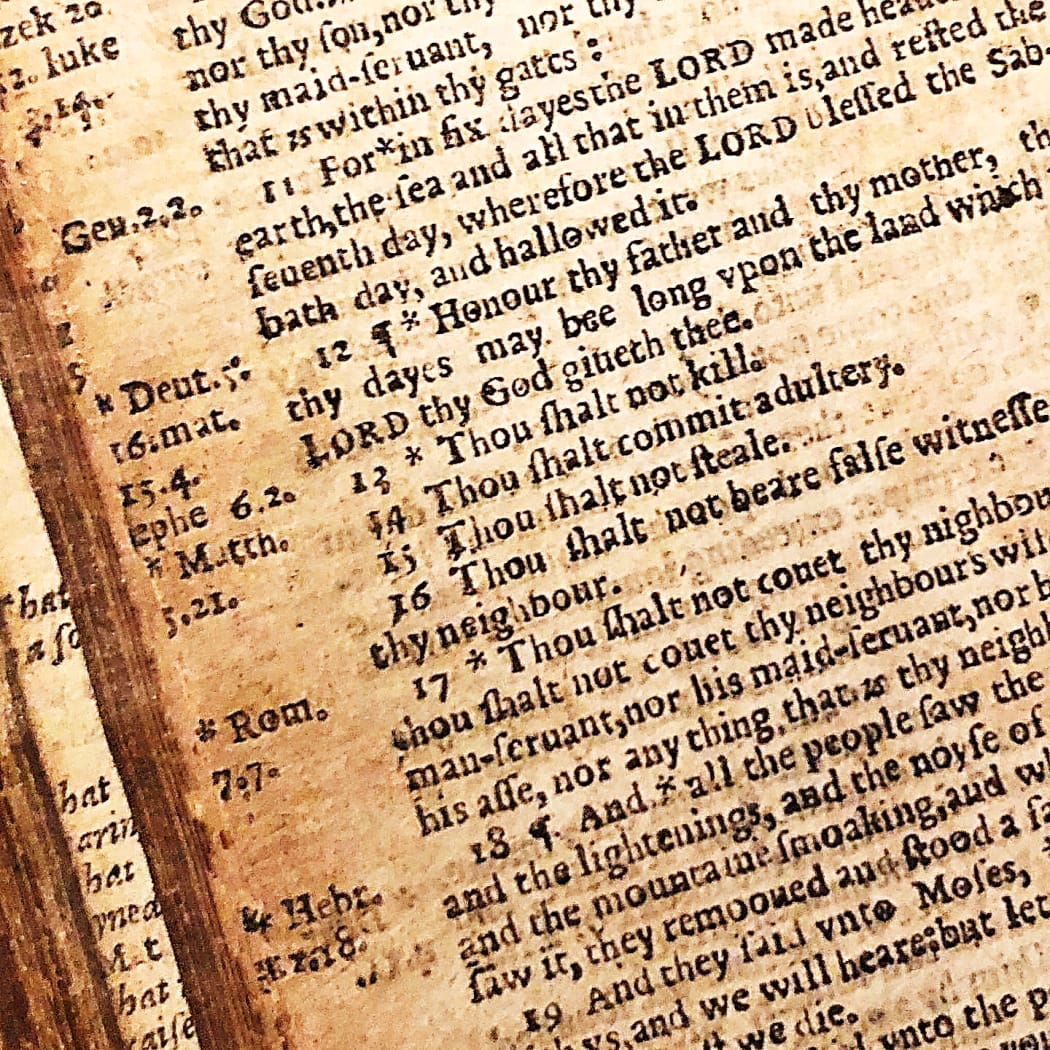 zek 20
12. luke
thy God.
nor thy ſon, nor thy
thy maid-ſeruant, nor thy
that is within thy gates:
11 For * in ſix dayes the LORD made heau
earth, the ſea and all that in them is, and reſted the
Gen. 2.2.
ſeuenth day, wherefore the LORD bleſſed the Sab-
bath day, and hallowed it.
12 ¶ * Honour thy father and thy mother, th
* Deut. 5.
thy dayes may bee long vpon the land which
16. mat.
LORD thy God giueth thee.
15.4.
13 * Thou ſhalt not kill.
ephe 6.2.
14 Thou ſhalt commit adultery.
* Matth.
15 Thou ſhalt not ſteale.
5,21.
16 Thou ſhalt not beare falſe witneſſe
thy neighbour.
17 * Thou ſhalt not couet thy nighbou
* Rom.
thou ſhalt not couet thy neighbours wif
7.7.
man-ſeruant, nor his maid-ſeruant, nor h
his aſſe, nor any thing that is thy neighb
18 ¶ And * all the people ſaw the
and the lightenings, and the noyſe of
* Hebr.
and the mountaine ſmoaking, and wh
12.18.
ſaw it, they remooued and ſtood a fa
19 And they ſaid vnto Moſes,
vs, and we will heare: but let
we die.
vnto the p
hat
a ſo
hat
hat
M.t
hat
raiſe